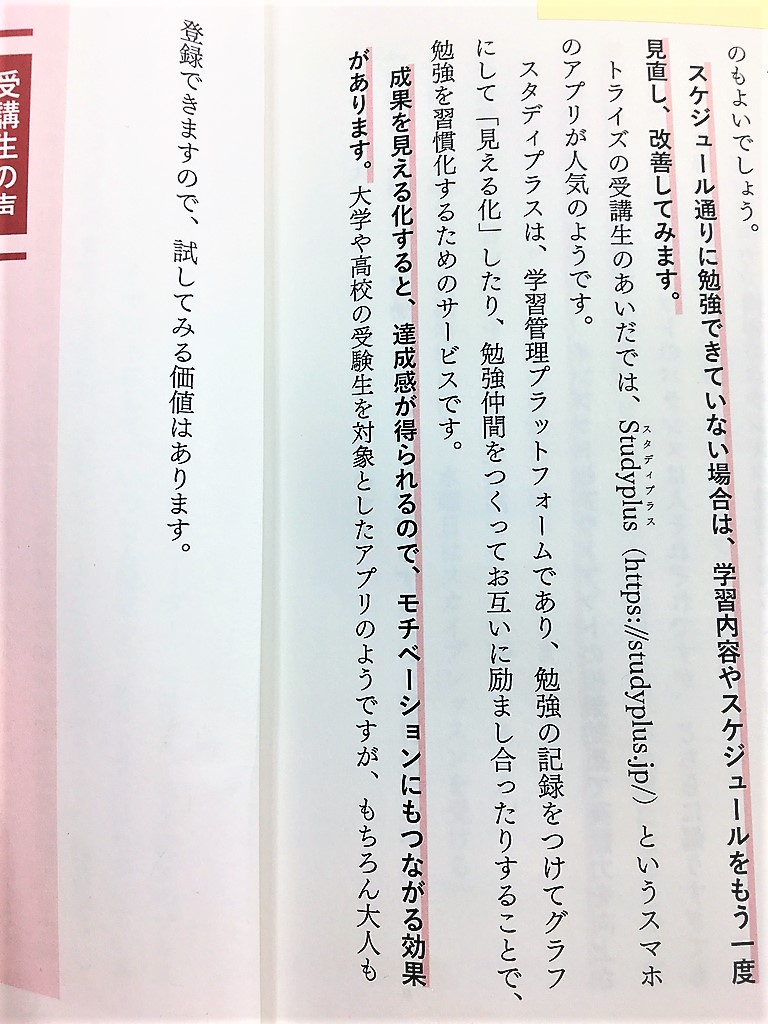 のもよいでしょう。
スケジュール通りに勉強できていない場合は、学習内容やスケジュールをもう一度
見直し、改善してみます。
トライズの受講生のあいだでは、Studyplus（https://studyplus.jp/）というスマホ
スタディプラス
のアプリが人気のようです。
スタディプラスは、学習管理プラットフォームであり、勉強の記録をつけてグラフ
にして「見える化」したり、勉強仲間をつくってお互いに励まし合ったりすることで、
勉強を習慣化するためのサービスです。
成果を見える化すると、達成感が得られるので、モチベーションにもつながる効果
があります。大学や高校の受験生を対象としたアプリのようですが、もちろん大人も
登録できますので、試してみる価値はあります。
受講生の声